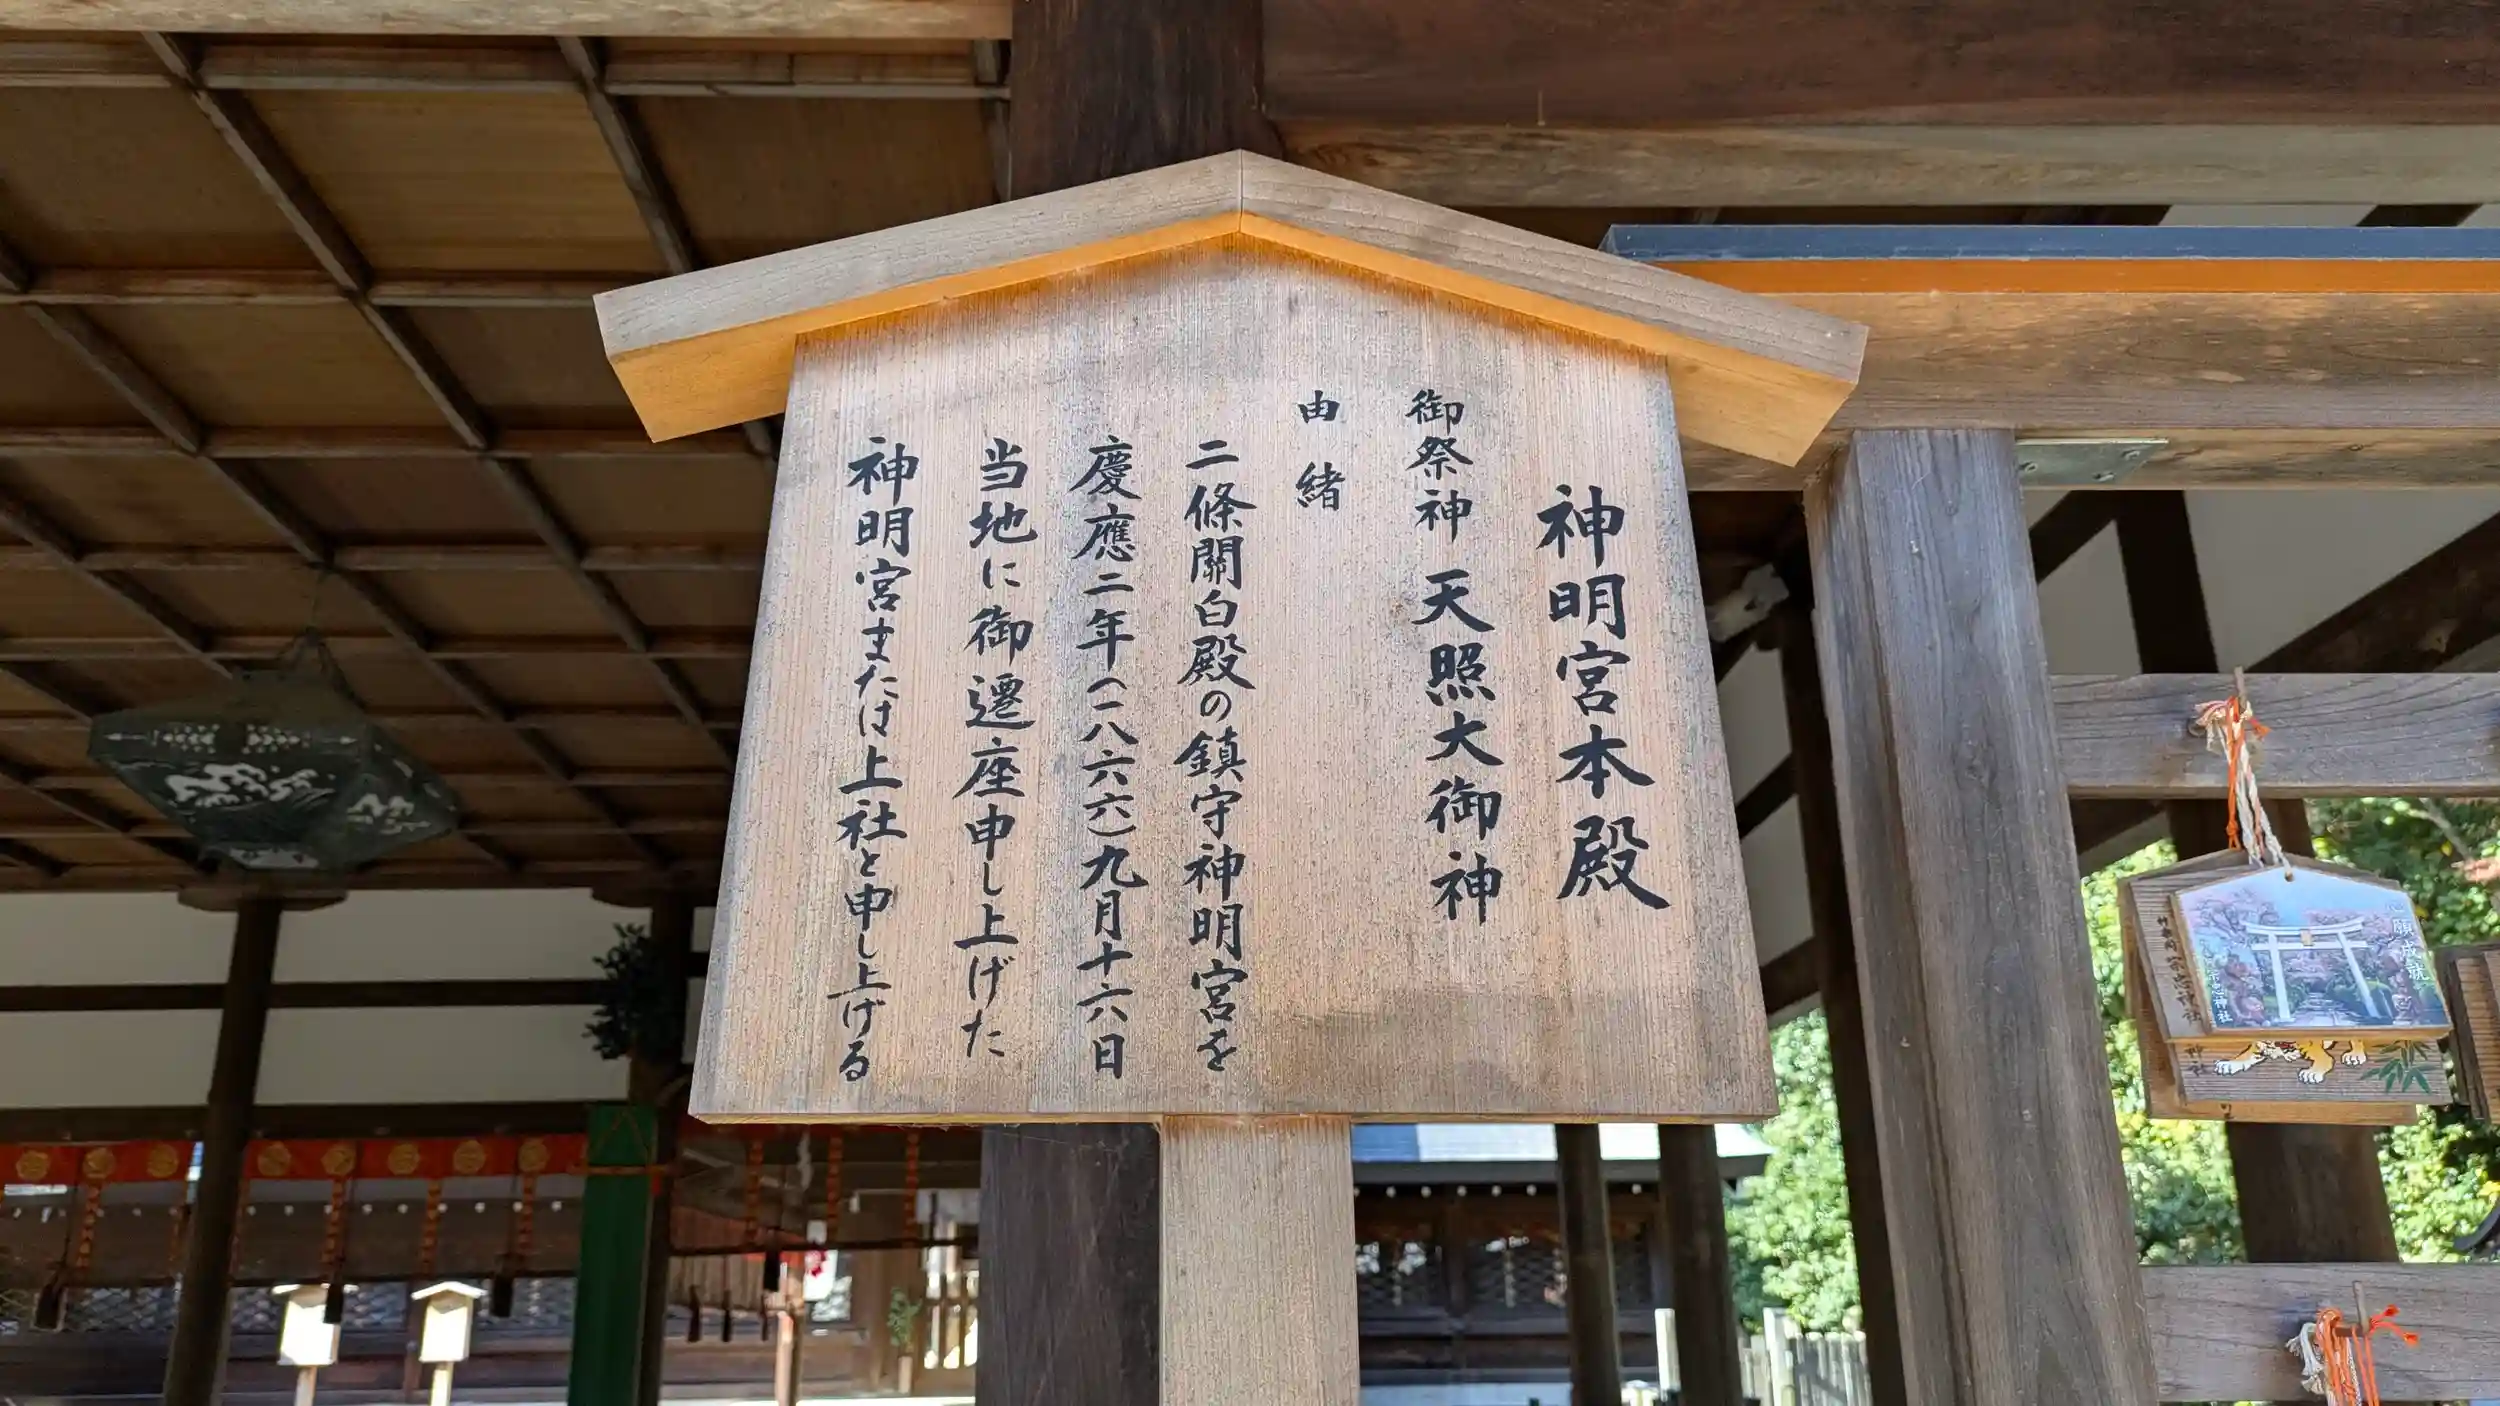 神明宮本殿
御祭神 天照大御神
由緒
二條關白殿の鎮守神明宮を
慶應二年(一八六六)九月十六日
当地に御遷座申し上げた
神明宮または上社と申し上げる
心願成就
宗忠神社
宗忠神社
神社